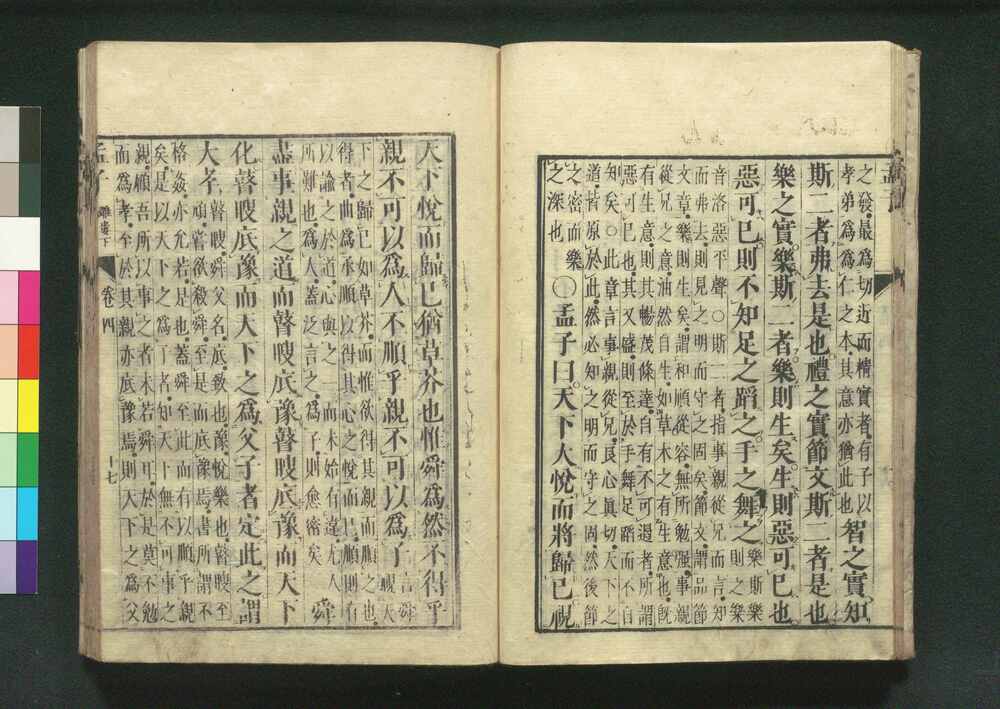 孟子
之發最爲切近而精實者有子以
孝弟爲爲仁之本其意亦猶此也 智之實知
斯二者弗去是也禮之實節文斯二者是也
樂之實樂斯二者樂則生矣生則惡可已也
惡可已則不知足之蹈之手之舞之 樂斯樂
則之樂
音洛惡平聲○斯二者指事親從兄而言知
而弗去則見之明而守之固矣節文謂品節
文章樂則生矣謂和順從容無所勉强事親
從兄之意油然自生如草木之有生意也既
有生意則其暢茂條達自有不可遏者所謂
惡可已也其又盛則至於手舞足蹈而不自
知矣○此章言事親從兄良心眞切天下之
道皆原於此然必知之明而守之固然後節
之文密而樂
之深也 ○孟子曰天下大悅而將歸已視
天下悅而歸已猶草芥也惟舜爲然不得乎
親不可以爲人不順乎親不可以爲子 言舜
視天
下之歸已如草芥而惟欲得其親而順之也
得者曲爲承順以得其心之悅而已順則有
以諭之於道心與之一而未始有違尤人
所難也爲人蓋泛言之爲子則愈密矣 舜
盡事親之道而瞽瞍底豫瞽瞍底豫而天下
化瞽瞍底豫而天下之爲父子者定此之謂
大孝 瞽瞍舜父名底致也豫悅樂也瞽瞍至
頑嘗欲殺舜至是而底豫焉書所謂不
格姦亦允若是也蓋舜至此而有以順乎親
矣是以天下之爲子者知天下無不可事之
親顧吾所以事之者未若舜耳於是莫不勉
而爲孝至於其親亦底豫焉則天下之爲父
孟子 離婁下 卷四 十七